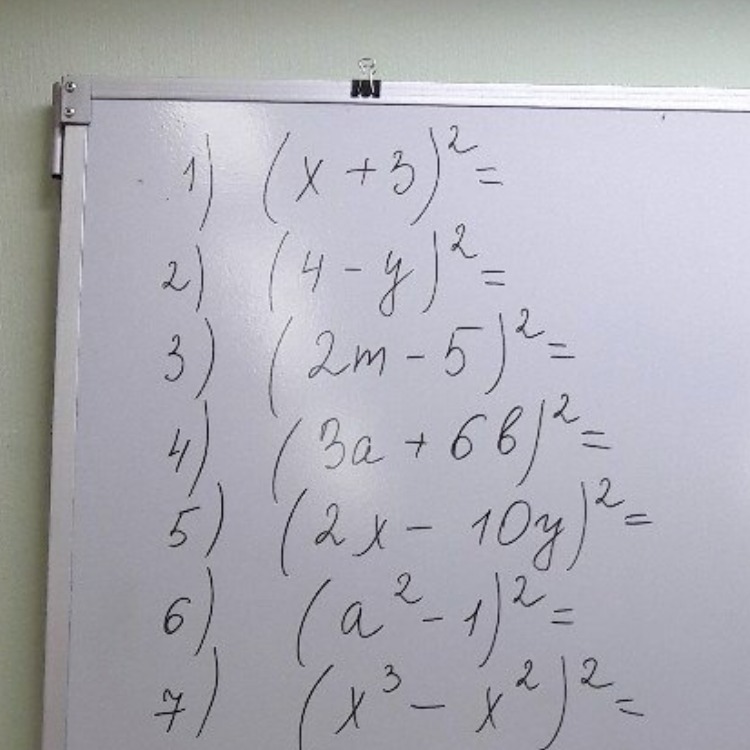 1) (x + 3)² =
2) (4 - y)² =
3) (2m - 5)² =
4) (3a + 6b)² =
5) (2x - 10y)² =
6) (a² - 1)² =
7) (x³ - x²)² =